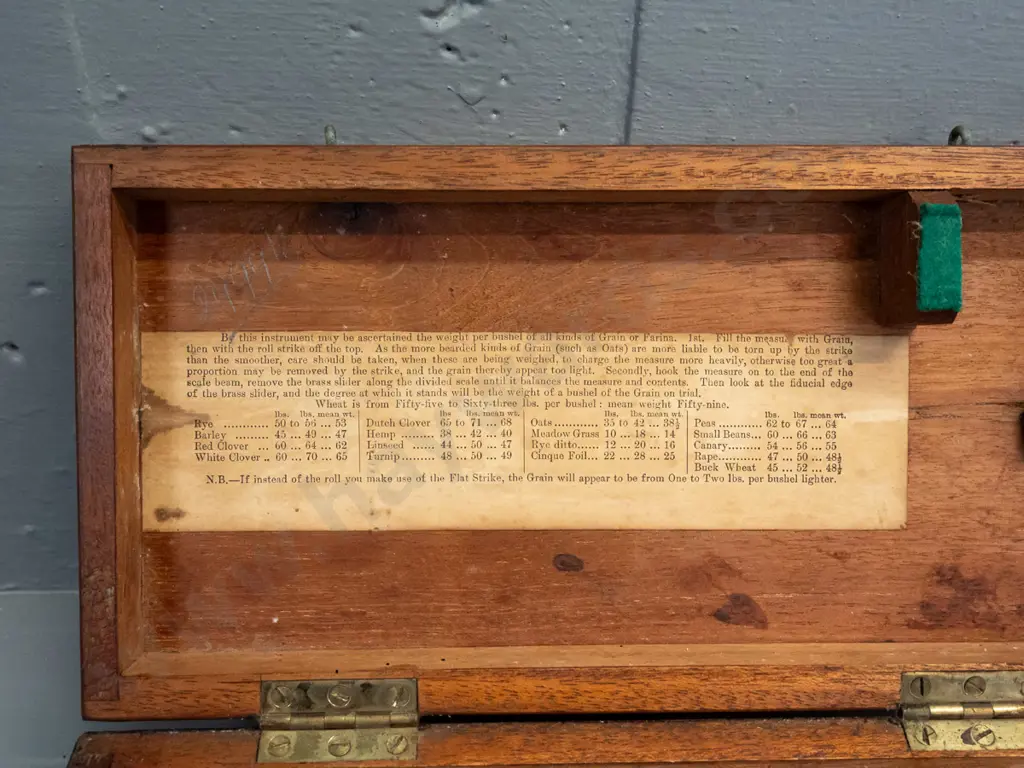 By this instrument may be ascertained the weight per bushel of all kinds of Grain or Farina. 1st. Fill the measure with Grain,
then with the roll strike off the top. As the more bearded kinds of Grain (such as Oats) are more liable to be torn up by the strike
than the smoother, care should be taken, when these are being weighed, to charge the measure more heavily, otherwise too great a
proportion may be removed by the strike, and the grain thereby appear too light. Secondly, hook the measure on to the end of the
scale beam, remove the brass slider along the divided scale until it balances the measure and contents. Then look at the fiducial edge
of the brass slider, and the degree at which it stands will be the weight of a bushel of the Grain on trial.
Wheat is from Fifty-five to Sixty-three lbs. per bushel: mean weight Fifty-nine.
lbs. lbs. mean wt. lbs. lbs. mean wt. lbs. lbs. mean wt. lbs. lbs. mean wt.
Rye ........... 50 to 56 ... 53 Dutch Clover 65 to 71 ... 68 Oats............ 35 to 42 ... 38½ Peas ............ 62 to 67 ... 64
Barley ........ 45 ... 49 ... 47 Hemp ......... 38 ... 42 ... 40 Meadow Grass 10 ... 18 ... 14 Small Beans... 60 ... 66 ... 63
Red Clover ... 60 ... 64 ... 62 Linseed ...... 44 ... 50 ... 47 Rye ditto...... 12 ... 20 ... 16 Canary......... 54 ... 56 ... 55
White Clover .. 60 ... 70 ... 65 Turnip ......... 48 ... 50 ... 49 Cinque Foil... 22 ... 28 ... 25 Rape............ 47 ... 50 ... 48½
Buck Wheat 45 ... 52 ... 48½
N.B.—If instead of the roll you make use of the Flat Strike, the Grain will appear to be from One to Two lbs. per bushel lighter.